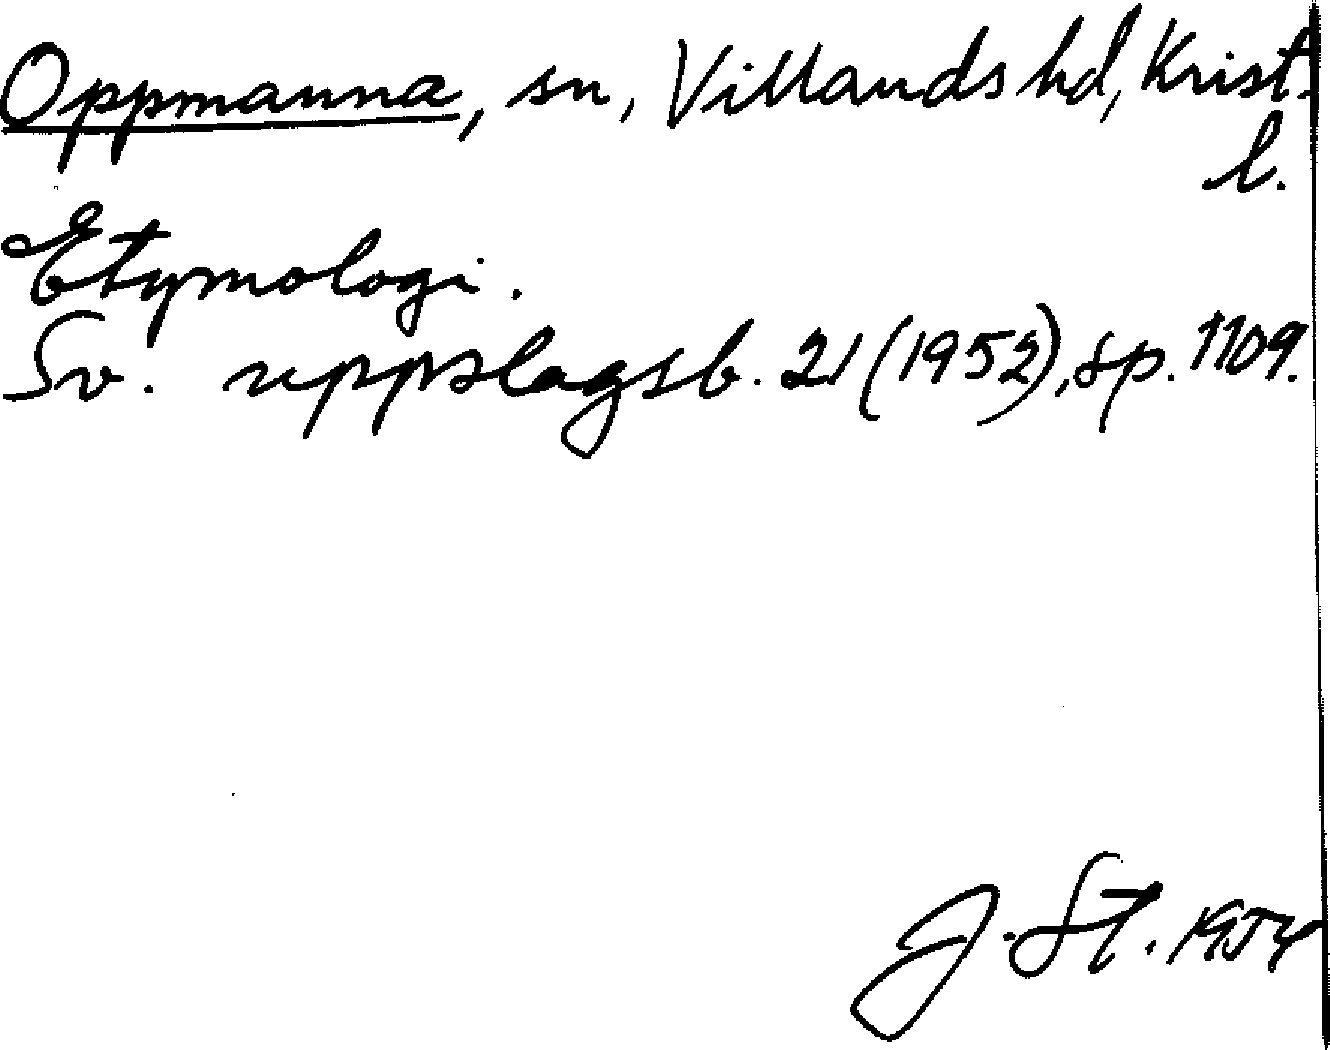 Oppmanna, sn, Villands hd, Krist.
l.
Etymologi.
Sv. uppslagsb. 21 (1952), sp. 1109.
J. St. 1954